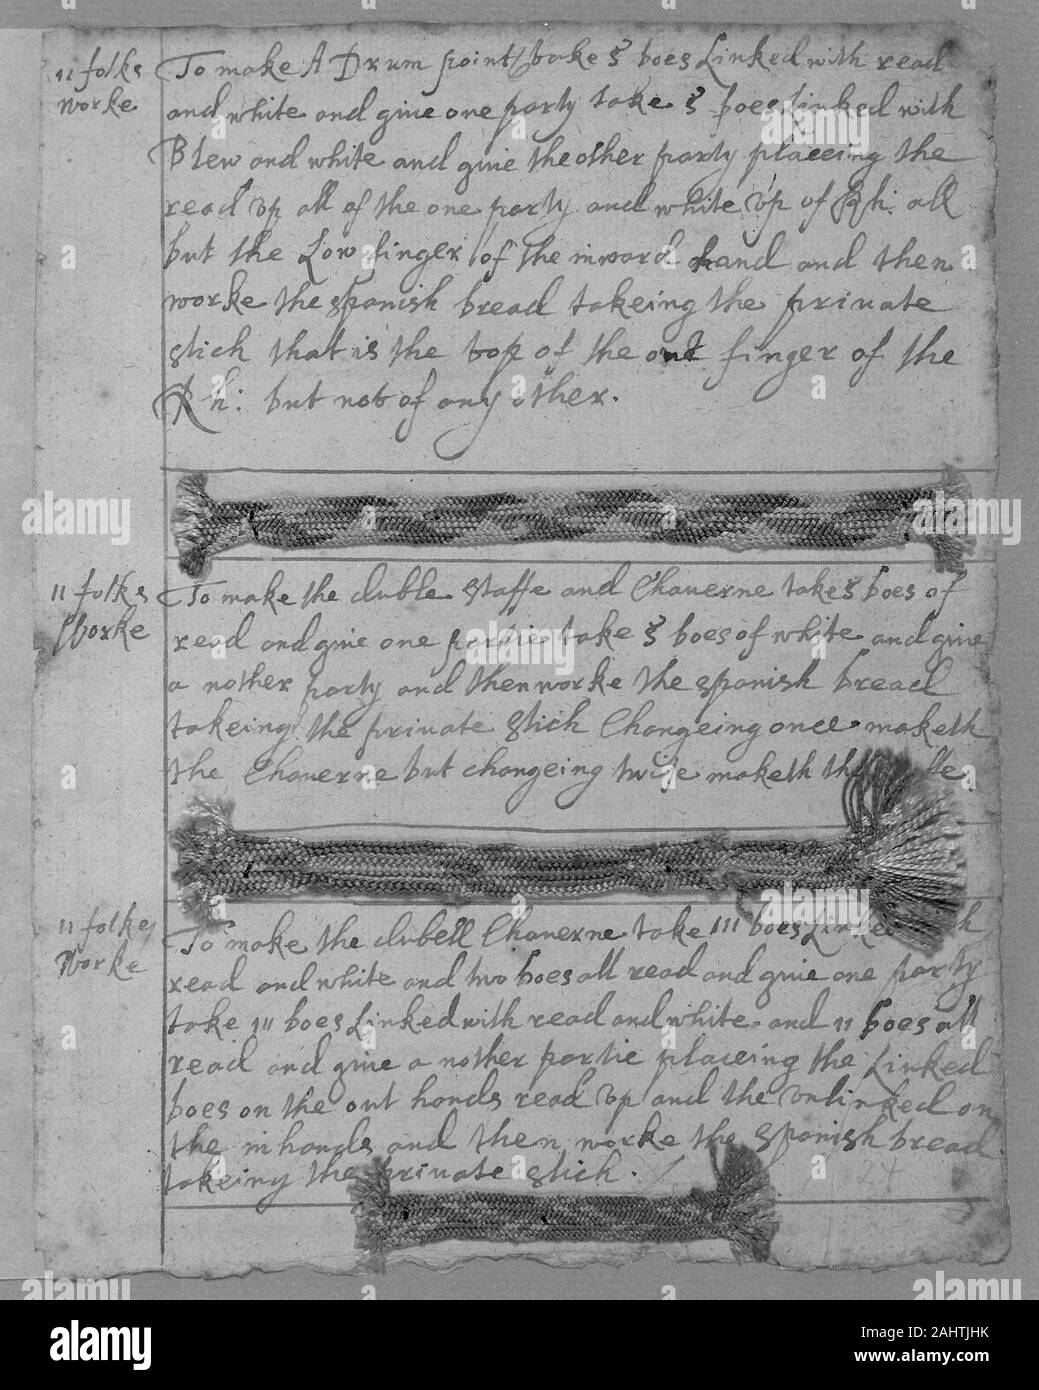 11 folks
Worke
To make A Drum point take 5 boes Linked with read
and white and giue one party take 5 boes Linked with
Blew and white and giue the other party placeing the
read vp all of the one party and white vp of Rh: all
but the Low finger of the inward hand and then
worke the spanish bread takeing the priuate
stich that is the top of the out finger of the
Rh: but not of any other.
11 folks
Worke
To make the duble staffe and Chauerne take 5 boes of
read and giue one partie take 5 boes of white and giue
a nother party and then worke the spanish bread
takeing the priuate stich Changeing once maketh
the Chauerne but changeing twise maketh the
11 folkes
Worke
To make the dubell Chauerne take 111 boes Linked
read and white and two boes all read and giue one party
take 111 boes Linked with read and white and 11 boes all
read and giue a nother partie placeing the Linked
boes on the out hands read vp and the vnlinked on
the in hands and then worke the spanish bread
takeing the priuate stich.
24
alamy
Image ID: 2AHTJHK
www.alamy.com